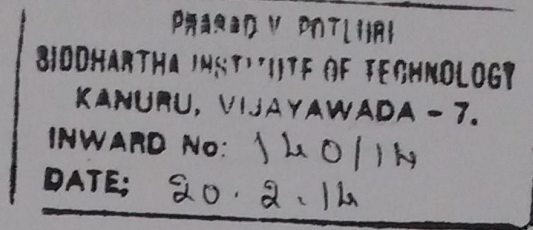 PRASAD V POTLURI
SIDDHARTHA INSTITUTE OF TECHNOLOGY
KANURU, VIJAYAWADA - 7.
INWARD No: 140/14
DATE: 20.2.14